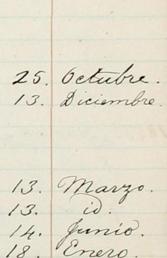 25. Octubre.
13. Diciembre.
13. Marzo.
13. id.
14. Junio.
18. Enero.